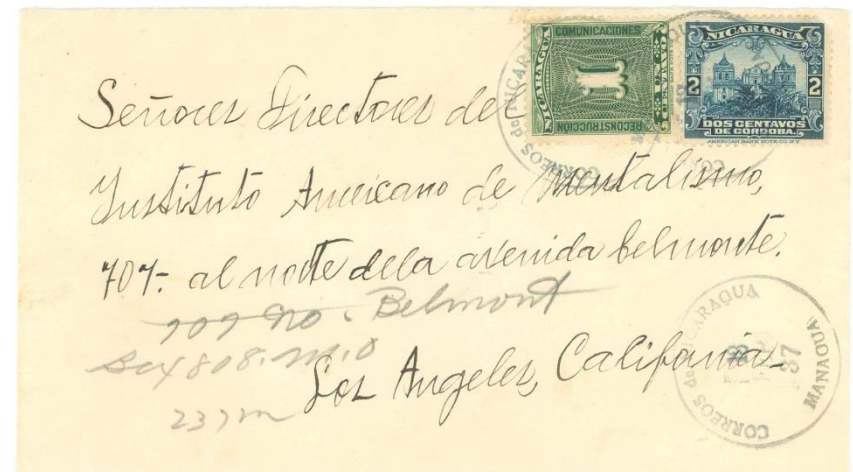 COMUNICACIONES
NICARAGUA
1
UN CENTAVO
RECONSTRUCCION
NICARAGUA
2 2
DOS CENTAVOS
DE CORDOBA.
AMERICAN BANK NOTE CO. N.Y.
CORREOS de NICARAGUA
Señores Directores del
Instituto Americano de Mentalismo,
707- al norte dela avenida belmonte.
707 No. Belmont
Box 808. M.O
Los Angeles, California-
237m
CORREOS de NICARAGUA
37
MANAGUA